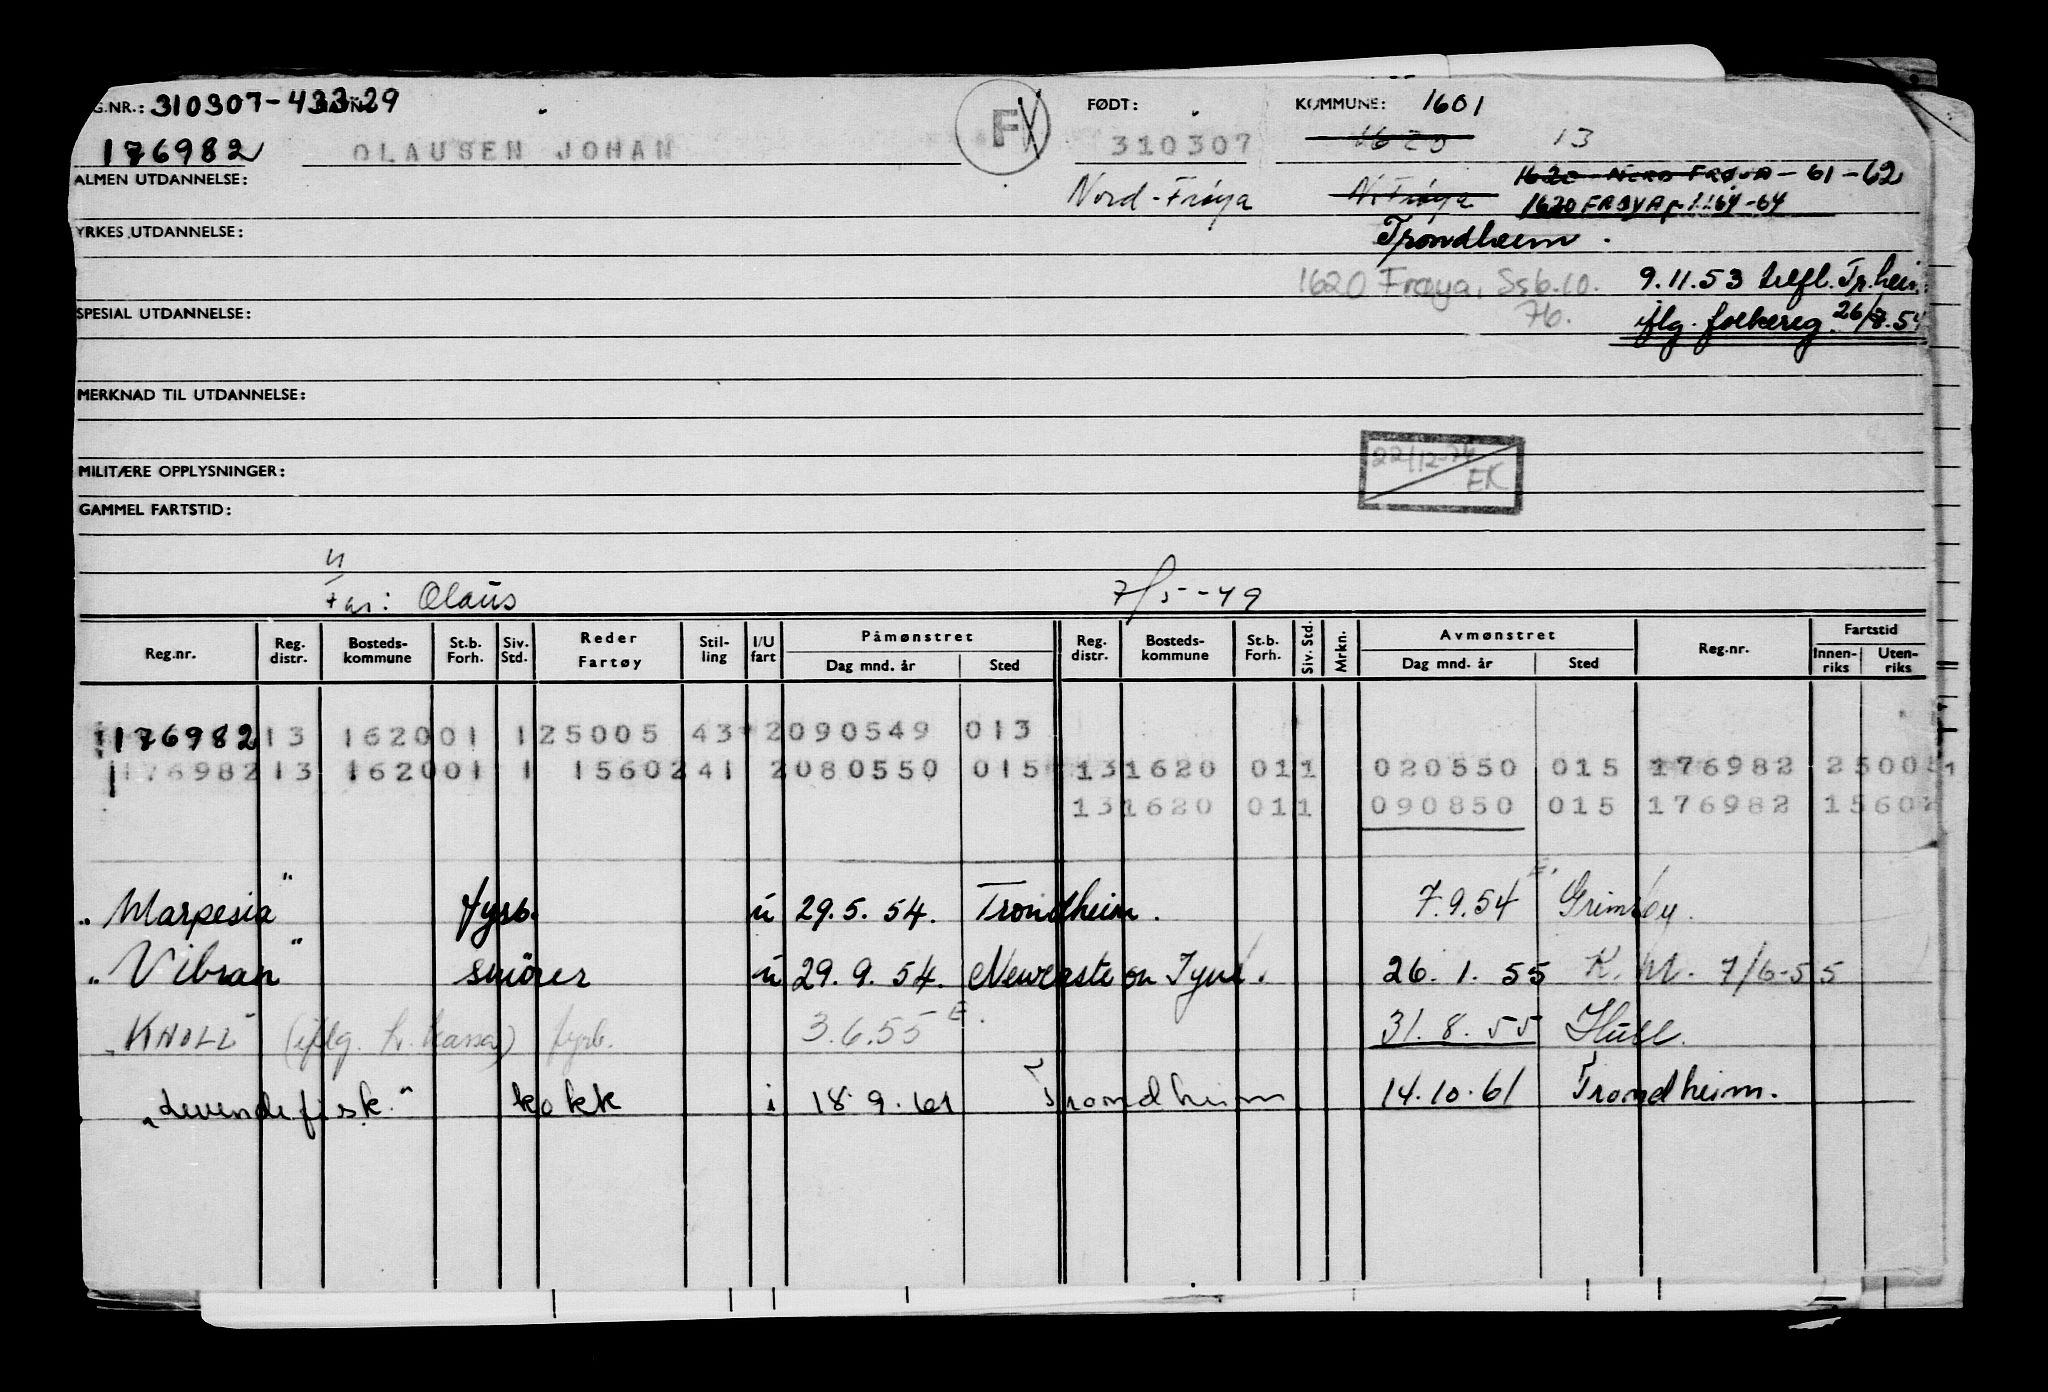 G.NR.: 310307-43329 FØDT: KOMMUNE: 1601
176982 OLAUSEN JOHAN F 310307 1620 13
ALMEN UTDANNELSE: Nord-Frøya N. Frøya 1620 NORD FRØYA - 61-62
1620 FRØYA p 1.1.64-64
YRKES UTDANNELSE: Trondheim.
1620 Frøya, Ssb.10. 9.11.53 Tr.heim
SPESIAL UTDANNELSE: 76. iflg. folkereg. 26/7.54
MERKNAD TIL UTDANNELSE:
MILITÆRE OPPLYSNINGER: 22/12-74 EK
GAMMEL FARTSTID:
Far: Olaus 7/5-49
Reg.nr. Reg. distr. Bosteds-kommune St.b. Forh. Siv. Std. Reder Fartøy Stil-ling I/U fart Påmønstret Dag mnd. år Sted Reg. distr. Bosteds-kommune St.b. Forh. Siv. Std. Mrkn. Avmønstret Dag mnd. år Sted Reg.nr. Fartstid Innen-riks Uten-riks
176982 13 1620 01 1 25005 43 2 090549 013
176982 13 1620 01 1 15602 41 2 080550 015 13 1620 01 1 020550 015 176982 25005 1
13 1620 01 1 090850 015 176982 15602
"Marpesia" fyrb. u 29.5.54. Trondheim. 7.9.54 E. Grimsby.
"Vibran" smörer u 29.9.54. Newcastle on Tyne. 26.1.55 K.M. 7/6-55
"KNOLL" (iflg. h. kassa) fyrb. 3.6.55 E. 31.8.55 Hull.
"Levendefisk." kokk i 18.9.61 Trondheim 14.10.61 Trondheim.